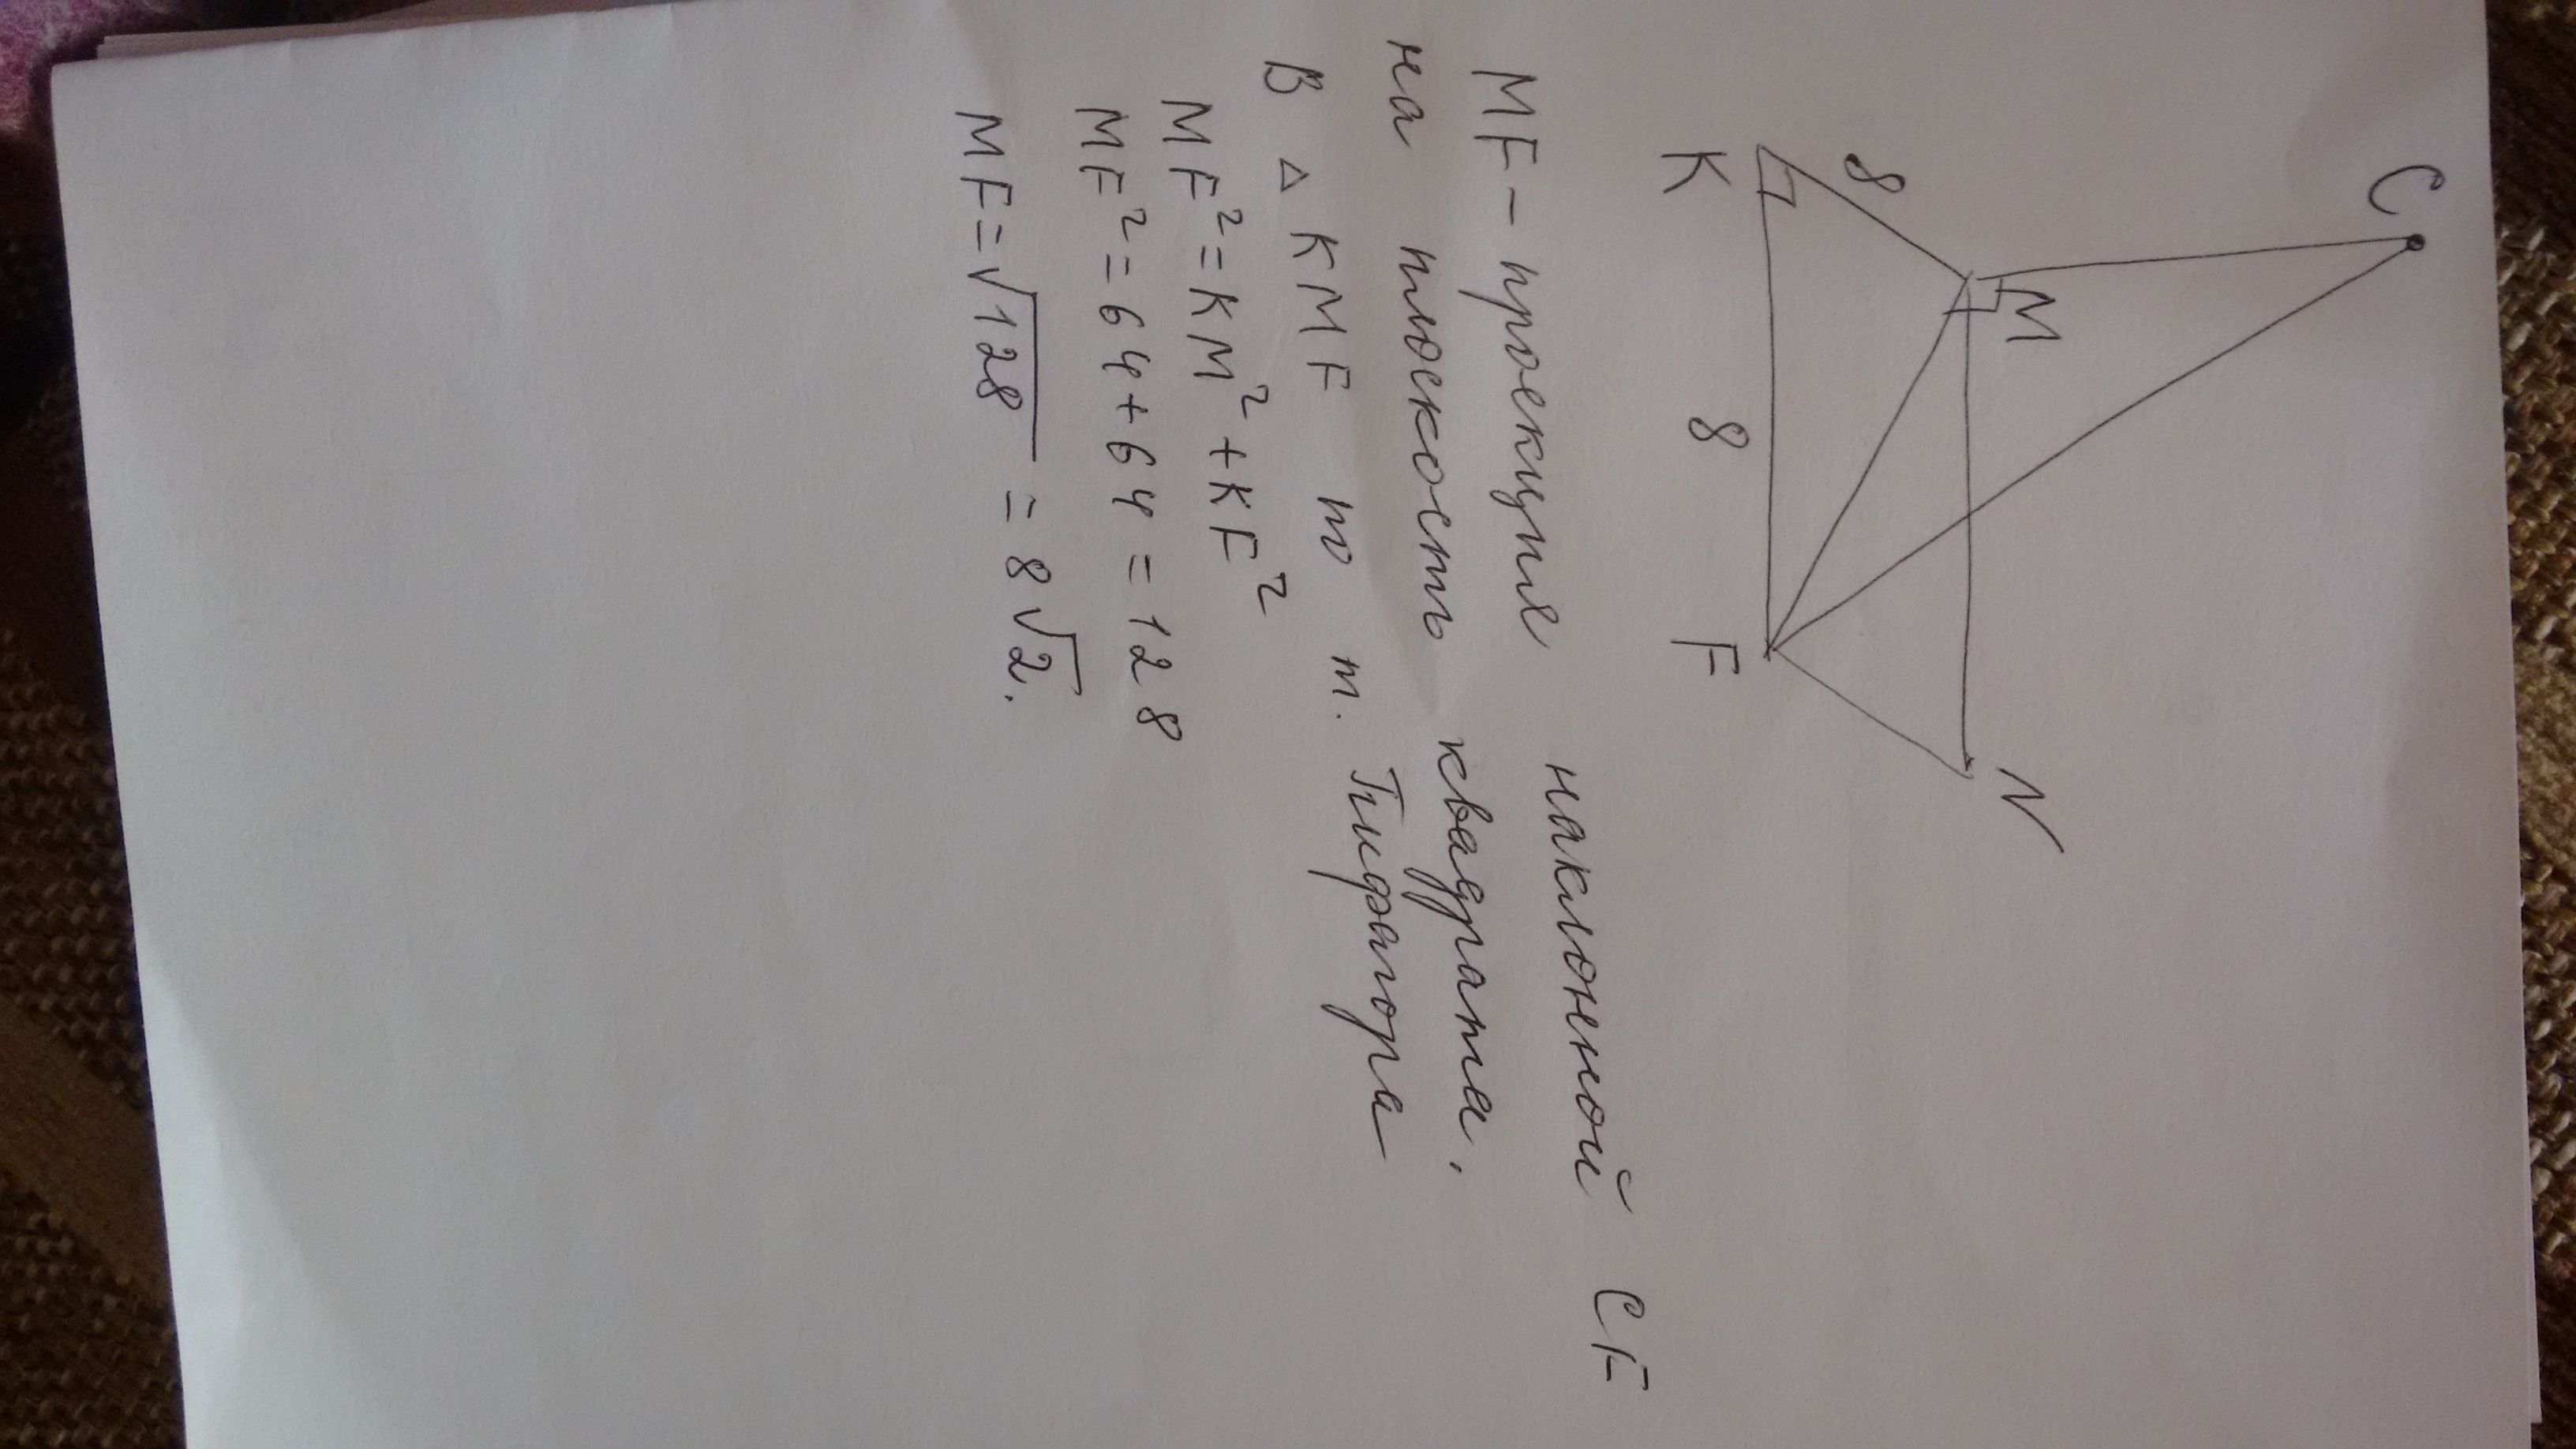 C
M
N
8
K
8
F
MF - проекция наклонной CF
на плоскость квадрата.
В △ KMF по т. Пифагора
MF² = KM² + KF²
MF² = 64 + 64 = 128
MF = √128 = 8√2.